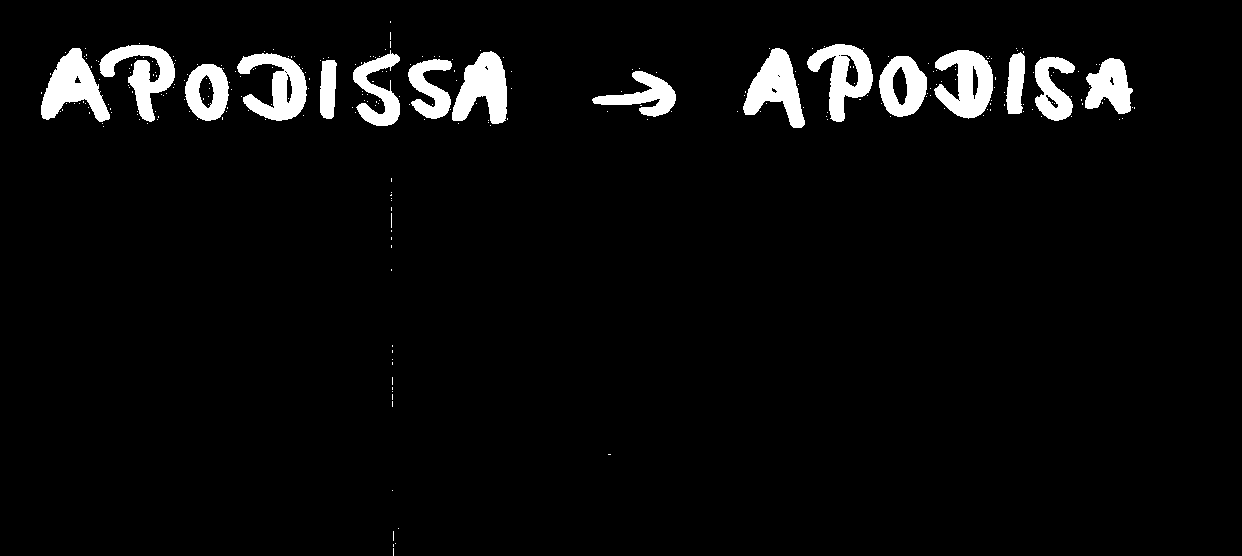 APODISSA → APODISA